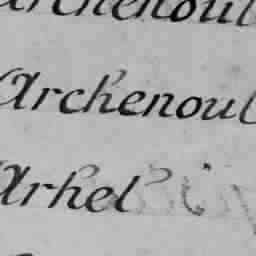 Archenoul
Archenoul
Arhel